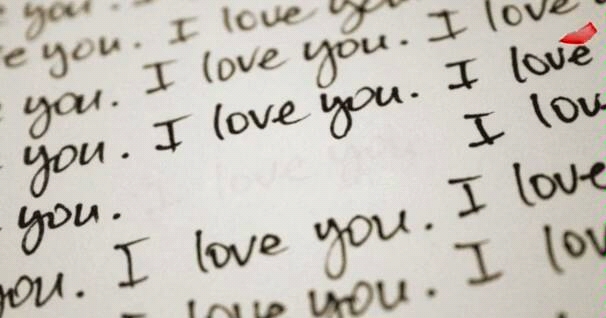 you.
e you. I love you
you. I love you. I love
you. I love you. I love
you. I love you. I lov
you. I love you. I love
I love you. I lov